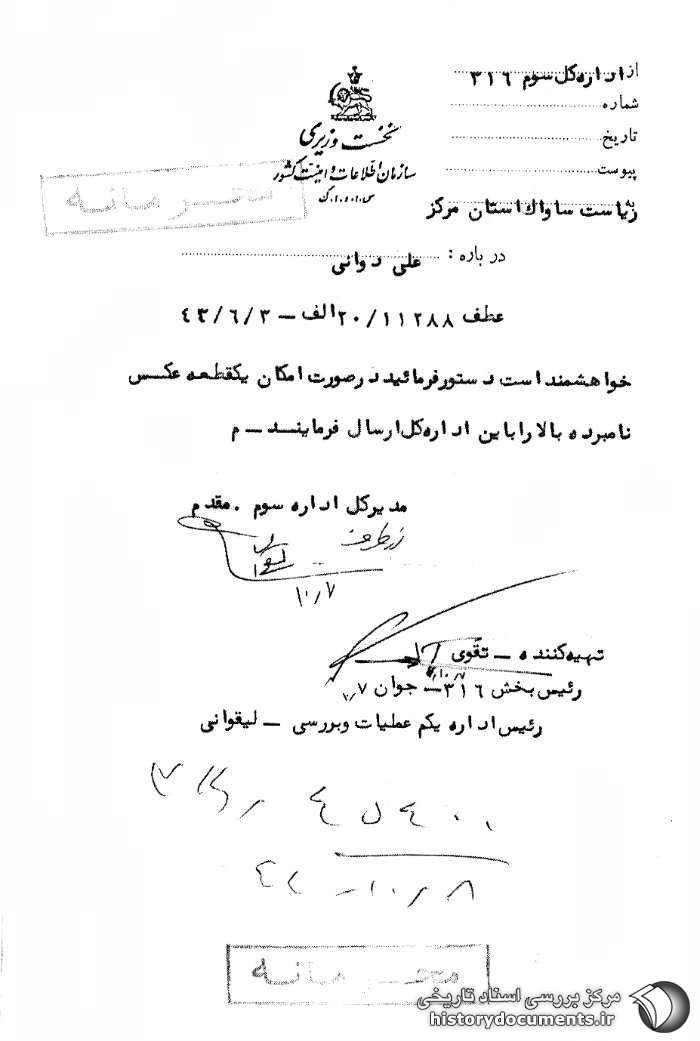 از اداره کل سوم ۳۱۶
شماره
تاریخ
پیوست
نخست وزیری
سازمان اطلاعات و امنیت کشور
س.ا.و.ا.ک
محرمانه
به ریاست ساواک استان مرکز
در باره : علی دوانی
عطف ۲۰/۱۱۲۸۸الف – ۴۳/۶/۳
خواهشمند است دستور فرمائید در صورت امکان یکقطعه عکس
نامبرده بالا را باین اداره کل ارسال فرمایند – م
مدیر کل اداره سوم . مقدم
از طرف
۱۰/۷
تهیه کننده – تقوی
رئیس بخش ۳۱۶ – جوان ۷
رئیس اداره یکم عملیات وبررسی – لیقوانی
محرمانه
مرکز بررسی اسناد تاریخی
historydocuments.ir